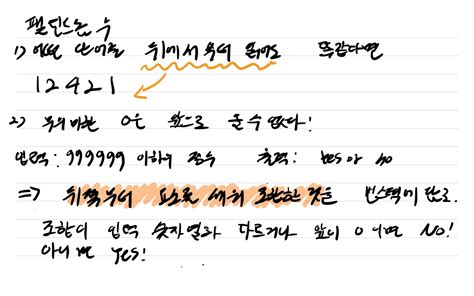 팰린드롬 수
1) 어떤 단어를 뒤에서부터 읽어도 똑같다면
12421
2) 무의미한 0은 앞으로 올 수 없다!
입력: 999999 이하의 정수 출력: yes or no
=> 뒤쪽부터 요소로 세워 조합한 것을 빈스택에 만들고.
조합이 입력 숫자열과 다르거나 앞이 0이면 NO!
아니면 yes!